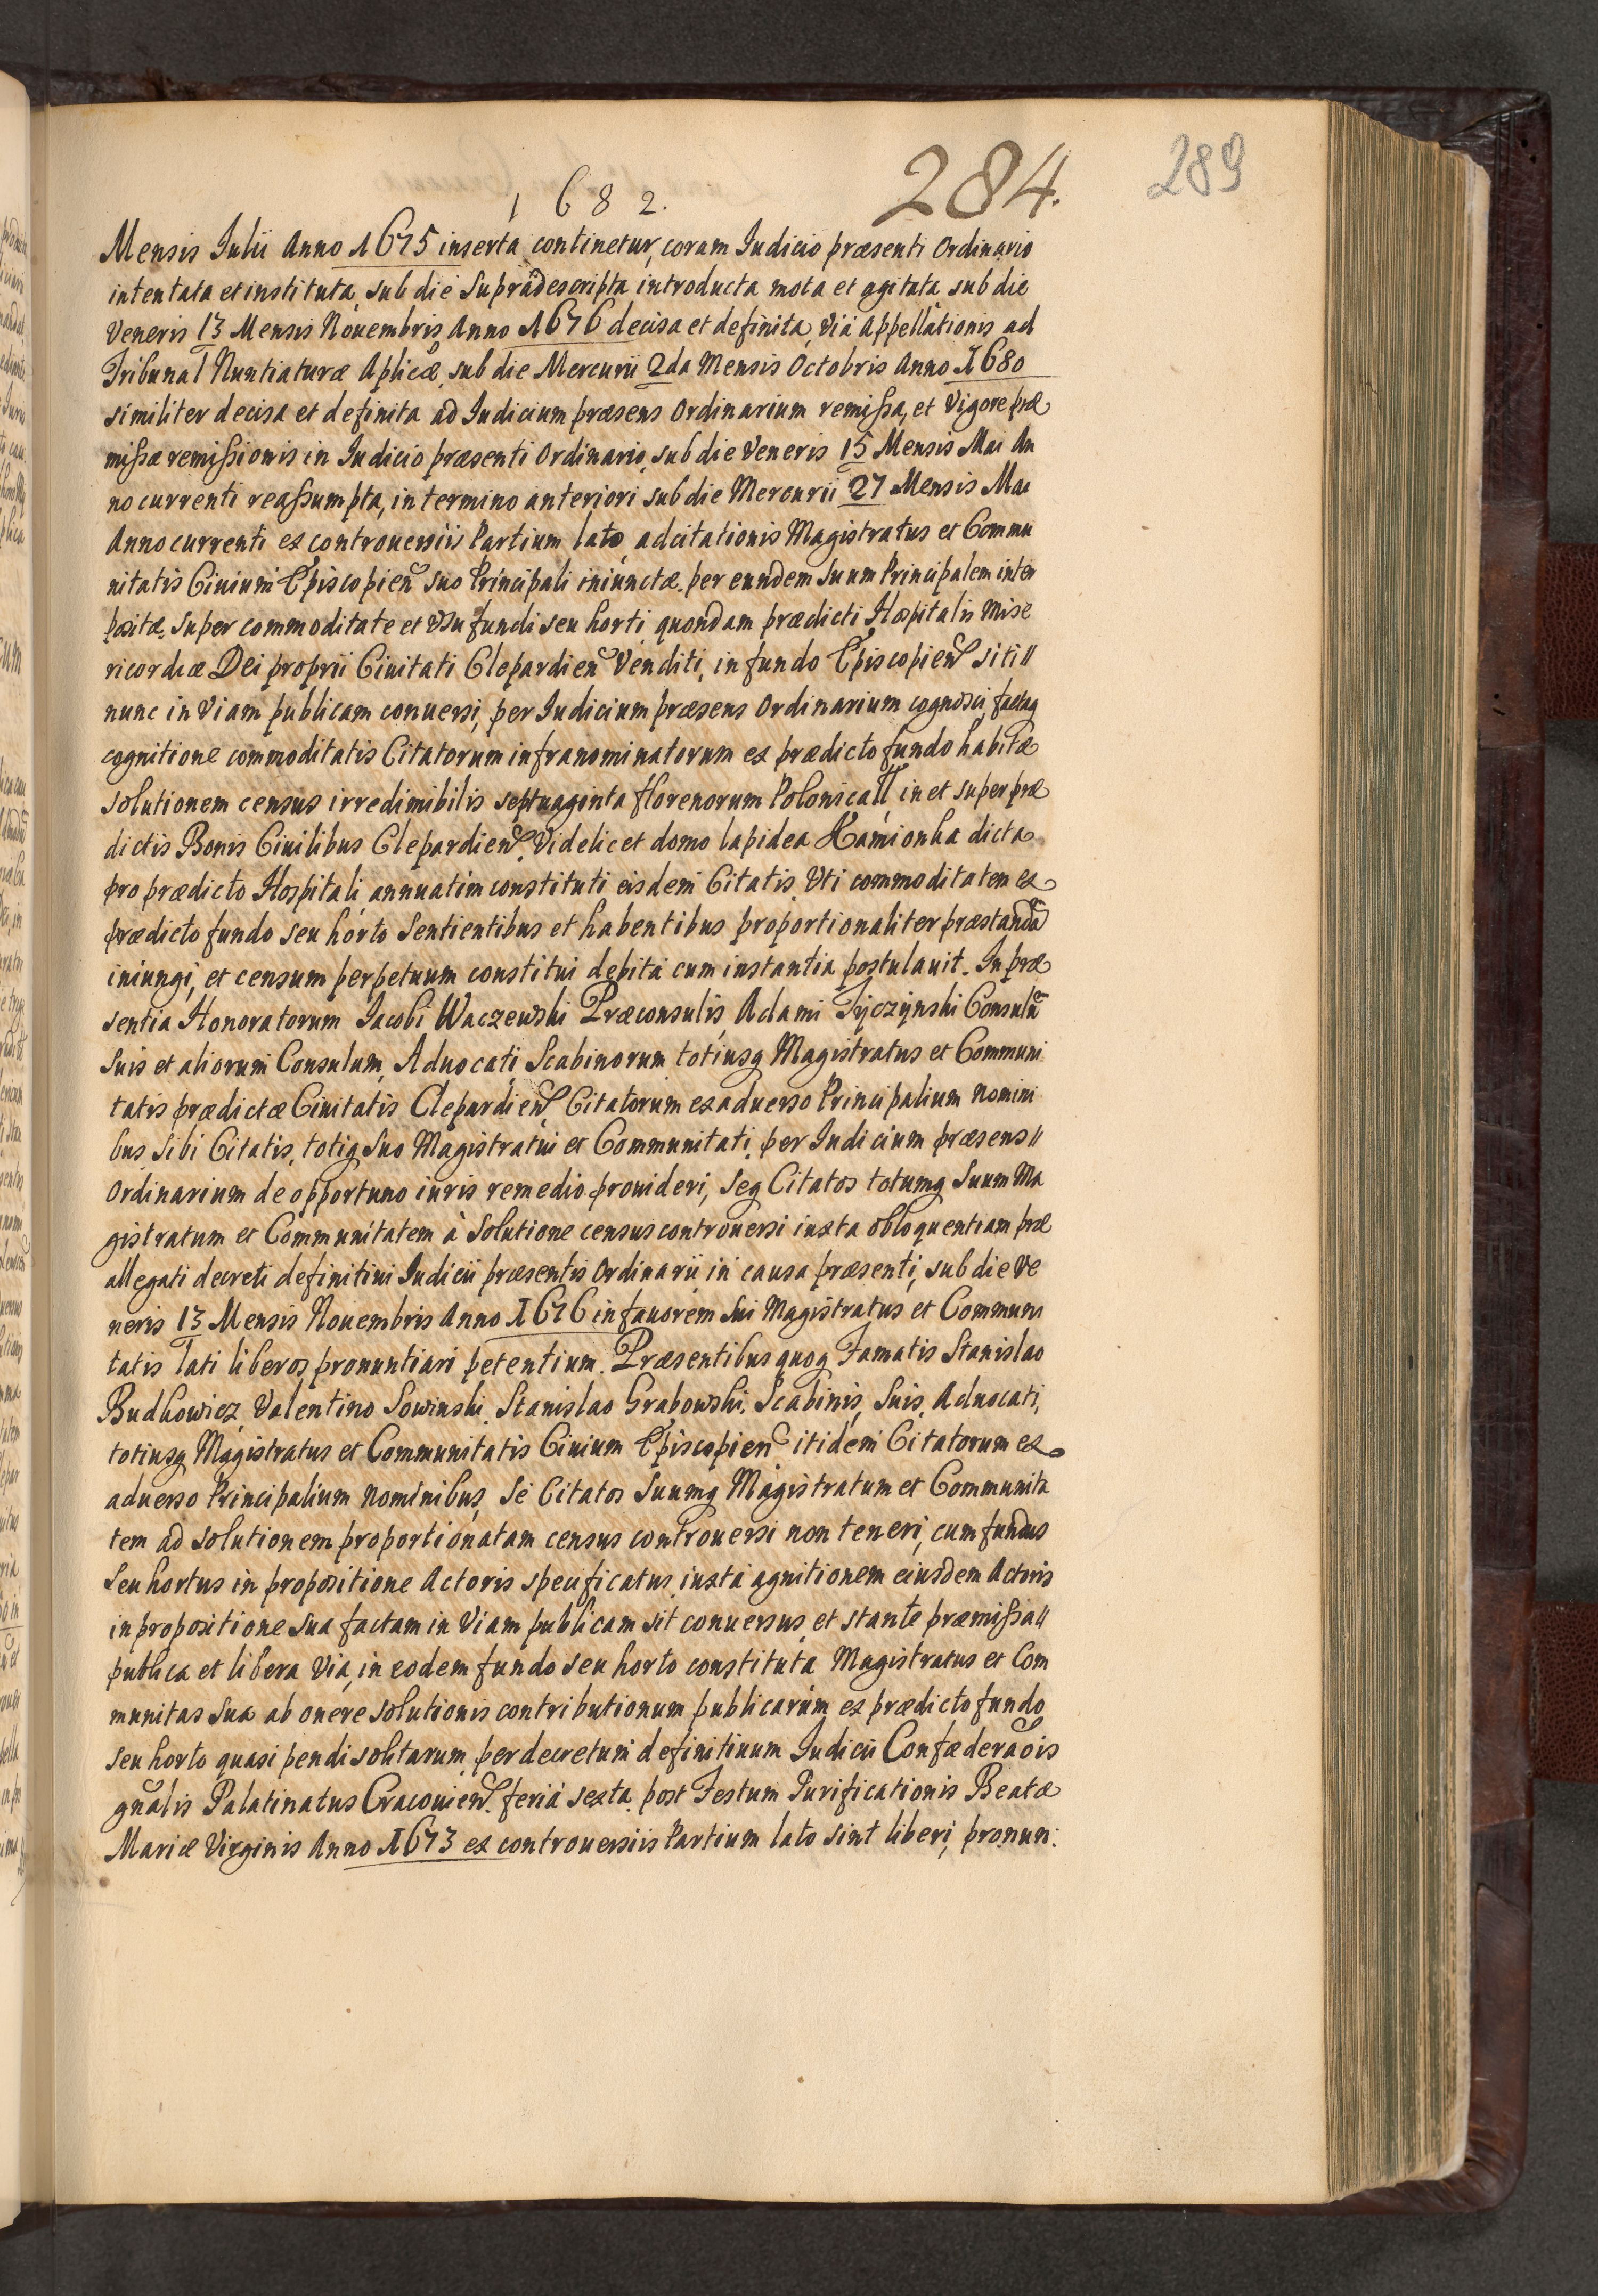 1682.
284.
289
Mensis Iulii Anno 1675 inserta continetur, coram Iudicio præsenti Ordinario
intentata et instituta, sub die supradescripta introducta mota et agitata, sub die
Veneris 13 Mensis Nouembris, Anno 1676 decisa et definita, Via Appellationis ad
Tribunal Nuntiaturæ Aplicæ, sub die Mercurii 2da Mensis Octobris Anno 1680
similiter decisa et definita ad Iudicium præsens Ordinarium remissa, et Vigore præ
missæ remissionis in Iudicio præsenti Ordinario, sub die Veneris 15 Mensis Mai An
no currenti reassumpta, in termino anteriori sub die Mercurii 27 Mensis Mai
Anno currenti ex controuersiis Partium lato, adcitationis Magistratus et Commu
nitatis Ciuium Episcopien suo Principali iniunctæ, per eundem suum Principalem inter
positæ, super commoditate et Vsu fundi seu horti quondam prædicti Hospitalis Mise
ricordiæ Dei proprii Ciuitati Clepardien Venditi, in fundo Episcopien siti //
nunc in Viam publicam conuersi, per Iudicium præsens Ordinarium cognosci, factaq
cognitione commoditatis Citatorum infranominatorum ex prædicto fundo habitæ
solutionem census irredimibilis septuaginta florenorum Polonicall in et super præ
dictis Bonis Ciuilibus Clepardien. Videlicet domo lapidea Kamionka dicta
pro prædicto Hospitali annuatim constituti eisdem Citatis, Vti commoditatem ex
prædicto fundo seu horto sentientibus et habentibus proportionaliter præstanda
iniungi, et censum perpetuum constitui debita cum instantia postulauit. In præ
sentia Honoratorum Iacobi Waczewski Præconsulis, Adami Tyczynski Consulu
suis et aliorum Consulum, Aduocati Scabinorum totiusq Magistratus et Communi
tatis prædictæ Ciuitatis Clepardien Citatorum ex aduerso Principalium nomini
bus sibi Citatis, totiq suo Magistratui et Communitati, per Iudicium præsens //
Ordinarium de opportuno iuris remedio prouideri, seq Citatos totumq suum Ma
gistratum et Communitatem à solutione census controuersi iuxta obloquentiam præ
allegati decreti definitiui Iudicii præsentis Ordinarii in causa præsenti, sub die Ve
neris 13 Mensis Nouembris Anno 1676 in fauorem sui Magistratus et Communi
tatis lati liberos pronuntiari petentium. Præsentibus quoq Famatis Stanislao
Budkowicz, Valentino Sowinski, Stanislao Grabowski, Scabinis, suis, Aduocati,
totiusq Magistratus et Communitatis Ciuium Episcopien itidem Citatorum ex
aduerso Principalium nominibus, se Citatos suumq Magistratum et Communita
tem ad solutionem proportionatam census controuersi non teneri, cum fundus
seu hortus in propositione Actoris specificatus, iuxta agnitionem eiusdem Actoris
in propositione sua factam in Viam publicam sit conuersus, et stante præmissa //
publica et libera Via, in eodem fundo seu horto constituta Magistratus et Com
munitas sua ab onere solutionis contributionum publicarum ex prædicto fundo
seu horto quasi pendi solitarum, per decretum definitiuum Iudicii Confæderaois
gnalis Palatinatus Cracouien. feria sexta post Festum Purificationis Beatæ
Mariæ Virginis Anno 1673 ex controuersiis Partium lato sint liberi, pronun: